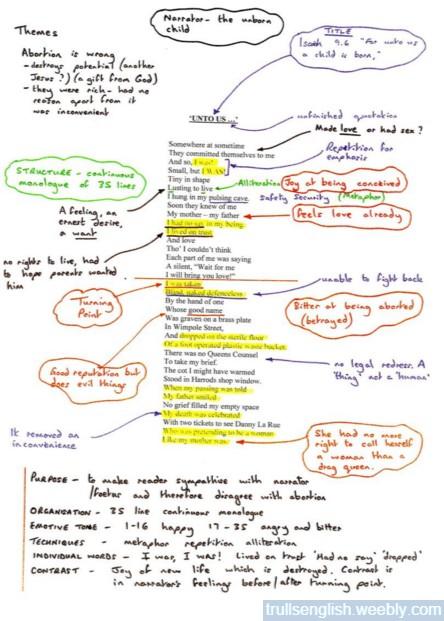 Narrator - the unborn
child
Themes
Abortion is wrong
- destroys potential (another
Jesus?) (a gift from God)
- they were rich - had no
reason apart from it
was inconvenient
TITLE
Isaah 9.6 "For unto us
a child is born,"
'UNTO US ...'
unfinished quotation
Made love or had sex?
Somewhere at sometime
They committed themselves to me
And so, I was!
Small, but I WAS!
Tiny in shape
Lusting to live
I hung in my pulsing cave.
Soon they knew of me
My mother – my father
I had no say in my being
I lived on trust
And love
Tho' I couldn't think
Each part of me was saying
A silent, "Wait for me
I will bring you love!"
I was taken
Blind, naked defenceless
By the hand of one
Whose good name
Was graven on a brass plate
In Wimpole Street,
And dropped on the sterile floor
Of a foot operated plastic waste bucket.
There was no Queens Counsel
To take my brief.
The cot I might have warmed
Stood in Harrods shop window.
When my passing was told
My father smiled
No grief filled my empty space
My death was celebrated
With two tickets to see Danny La Rue
Who was pretending to be a woman
Like my mother was.
Repetition for
emphasis
STRUCTURE - continuous
monologue of 35 lines
Alliteration
Joy at being conceived
safety security (Metaphor)
A feeling, an
ernest desire,
a want
feels love already
no rights to live, had
to hope parents wanted
him
unable to fight back
Turning
Point
Bitter at being aborted
(betrayed)
Good reputation but
does evil things
no legal redress. A
'thing' not a 'human'
It removed an
inconvenience
She had no more
right to call herself
a woman than a
drag queen.
PURPOSE - to make reader sympathise with narrator
/foetus and therefore disagree with abortion
ORGANISATION - 35 line continuous monologue
EMOTIVE TONE - 1-16 happy 17-35 angry and bitter
TECHNIQUES - metaphor repetition alliteration
INDIVIDUAL WORDS - I was, I was! Lived on trust 'Had no say' 'dropped'
CONTRAST - Joy of new life which is destroyed. Contrast is
in narrator's feelings before/after turning point.
trullsenglish.weebly.com